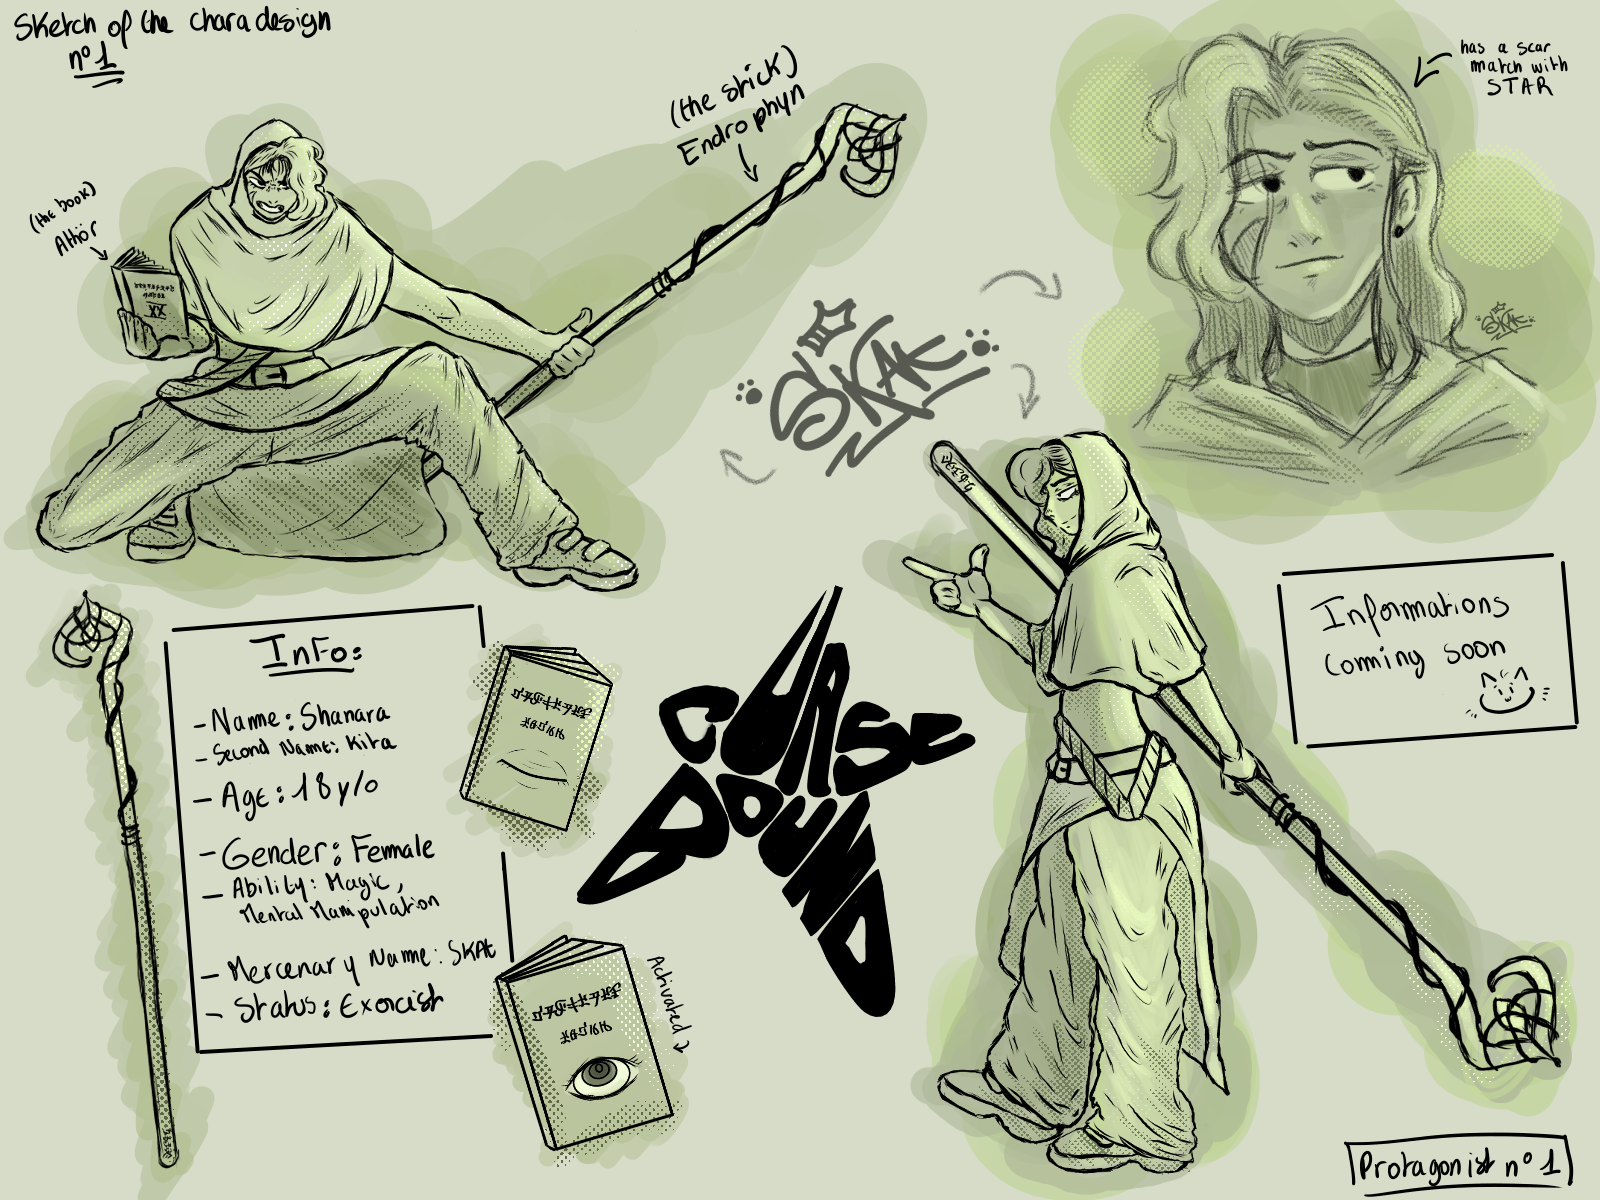 Sketch of the chara design
n°1
(the stick)
Endrophyn
(the book)
Athör
has a scar
match with
STAR
SKAt
SKAt
Info:
- Name: Shanara
- Second Name: Kita
- Age: 18 y/o
- Gender: Female
- Ability: Magic,
Mental Manipulation
- Mercenary Name: SKAt
- Status: Exorcist
Activated
CURSE
BOUND
Informations
Coming soon
Protagonist n°1